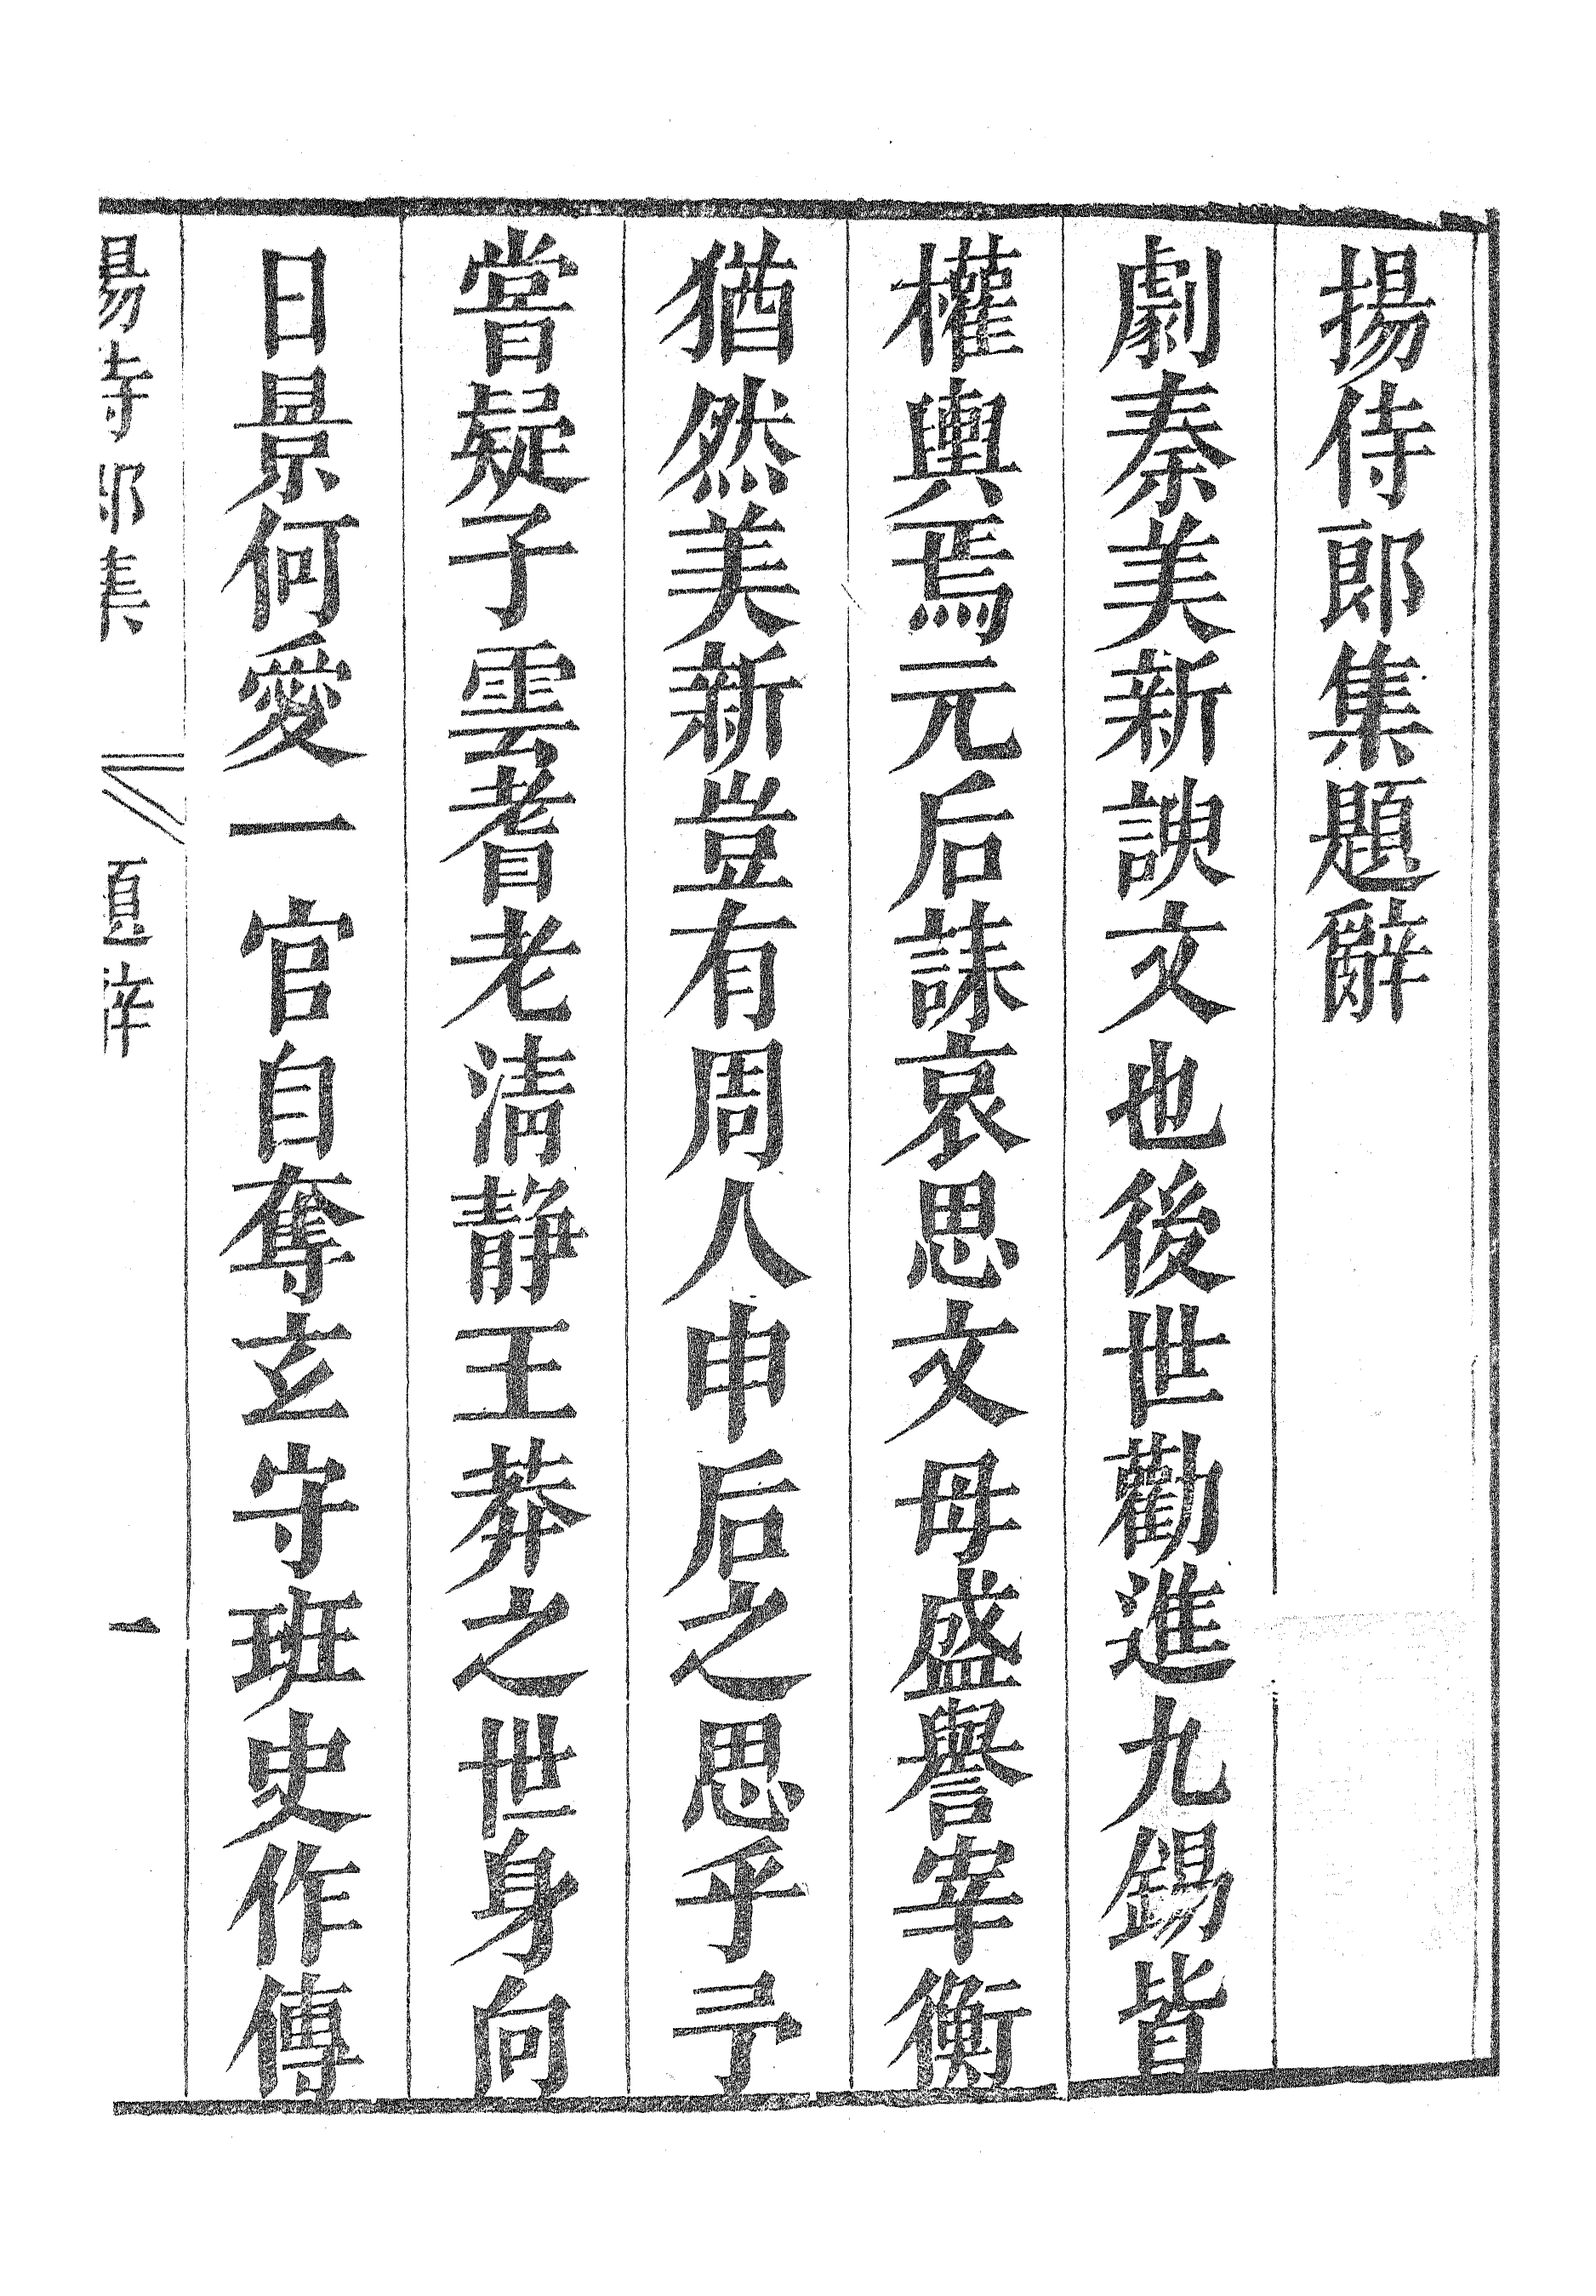 揚侍郎集題辭
劇秦美新諛文也後世勸進九錫皆
權輿焉元后誄哀思文母盛譽宰衡
猶然美新豈有周人申后之思乎予
嘗疑子雲耆老淸静王莽之世身向
日景何愛一官自奪玄守班史作傳
揚侍郎集 題辭 一